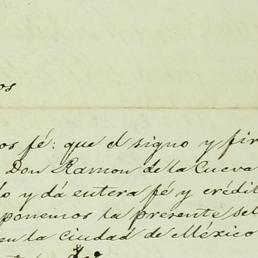 os
os fé: que el signo y fir
Don Ramon de la Cueva
o y dá entera fé y crédit
ponemos la presente sel
en la ciudad de México